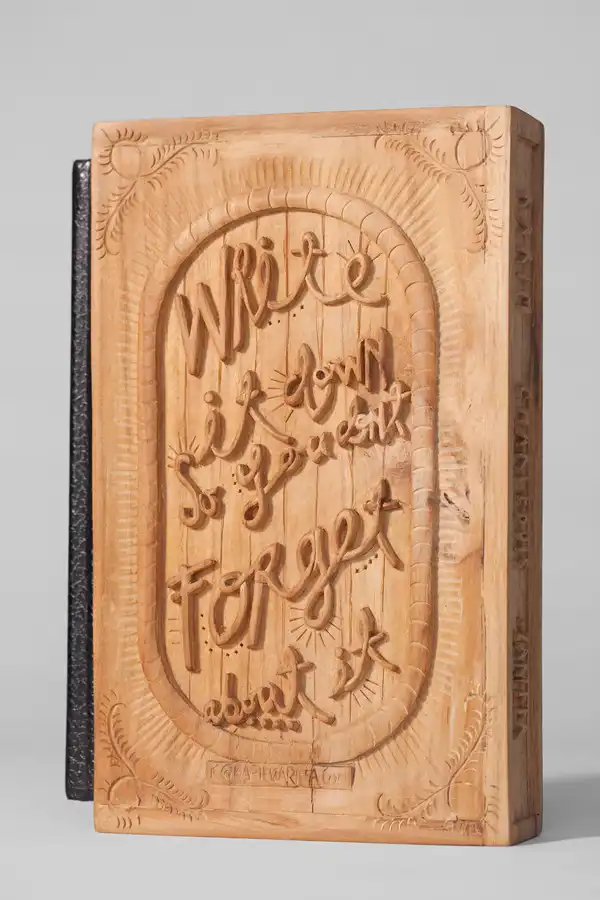 Write
it down
So you don't
FORget
about it